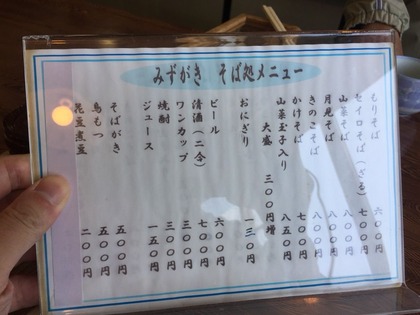 みずがき そば処メニュー
もりそば 六〇〇円
セイロそば(ざる) 七〇〇円
山菜そば 八〇〇円
月見そば 八〇〇円
きのこそば 八〇〇円
かけそば 七〇〇円
山菜玉子入り 八五〇円
大盛 三〇〇円増
おにぎり 一三〇円
ビール 六〇〇円
清酒(二合) 七〇〇円
ワンカップ 三〇〇円
焼酎 三〇〇円
ジュース 一五〇円
そばがき 五〇〇円
鳥もつ 五〇〇円
花豆煮豆 二〇〇円